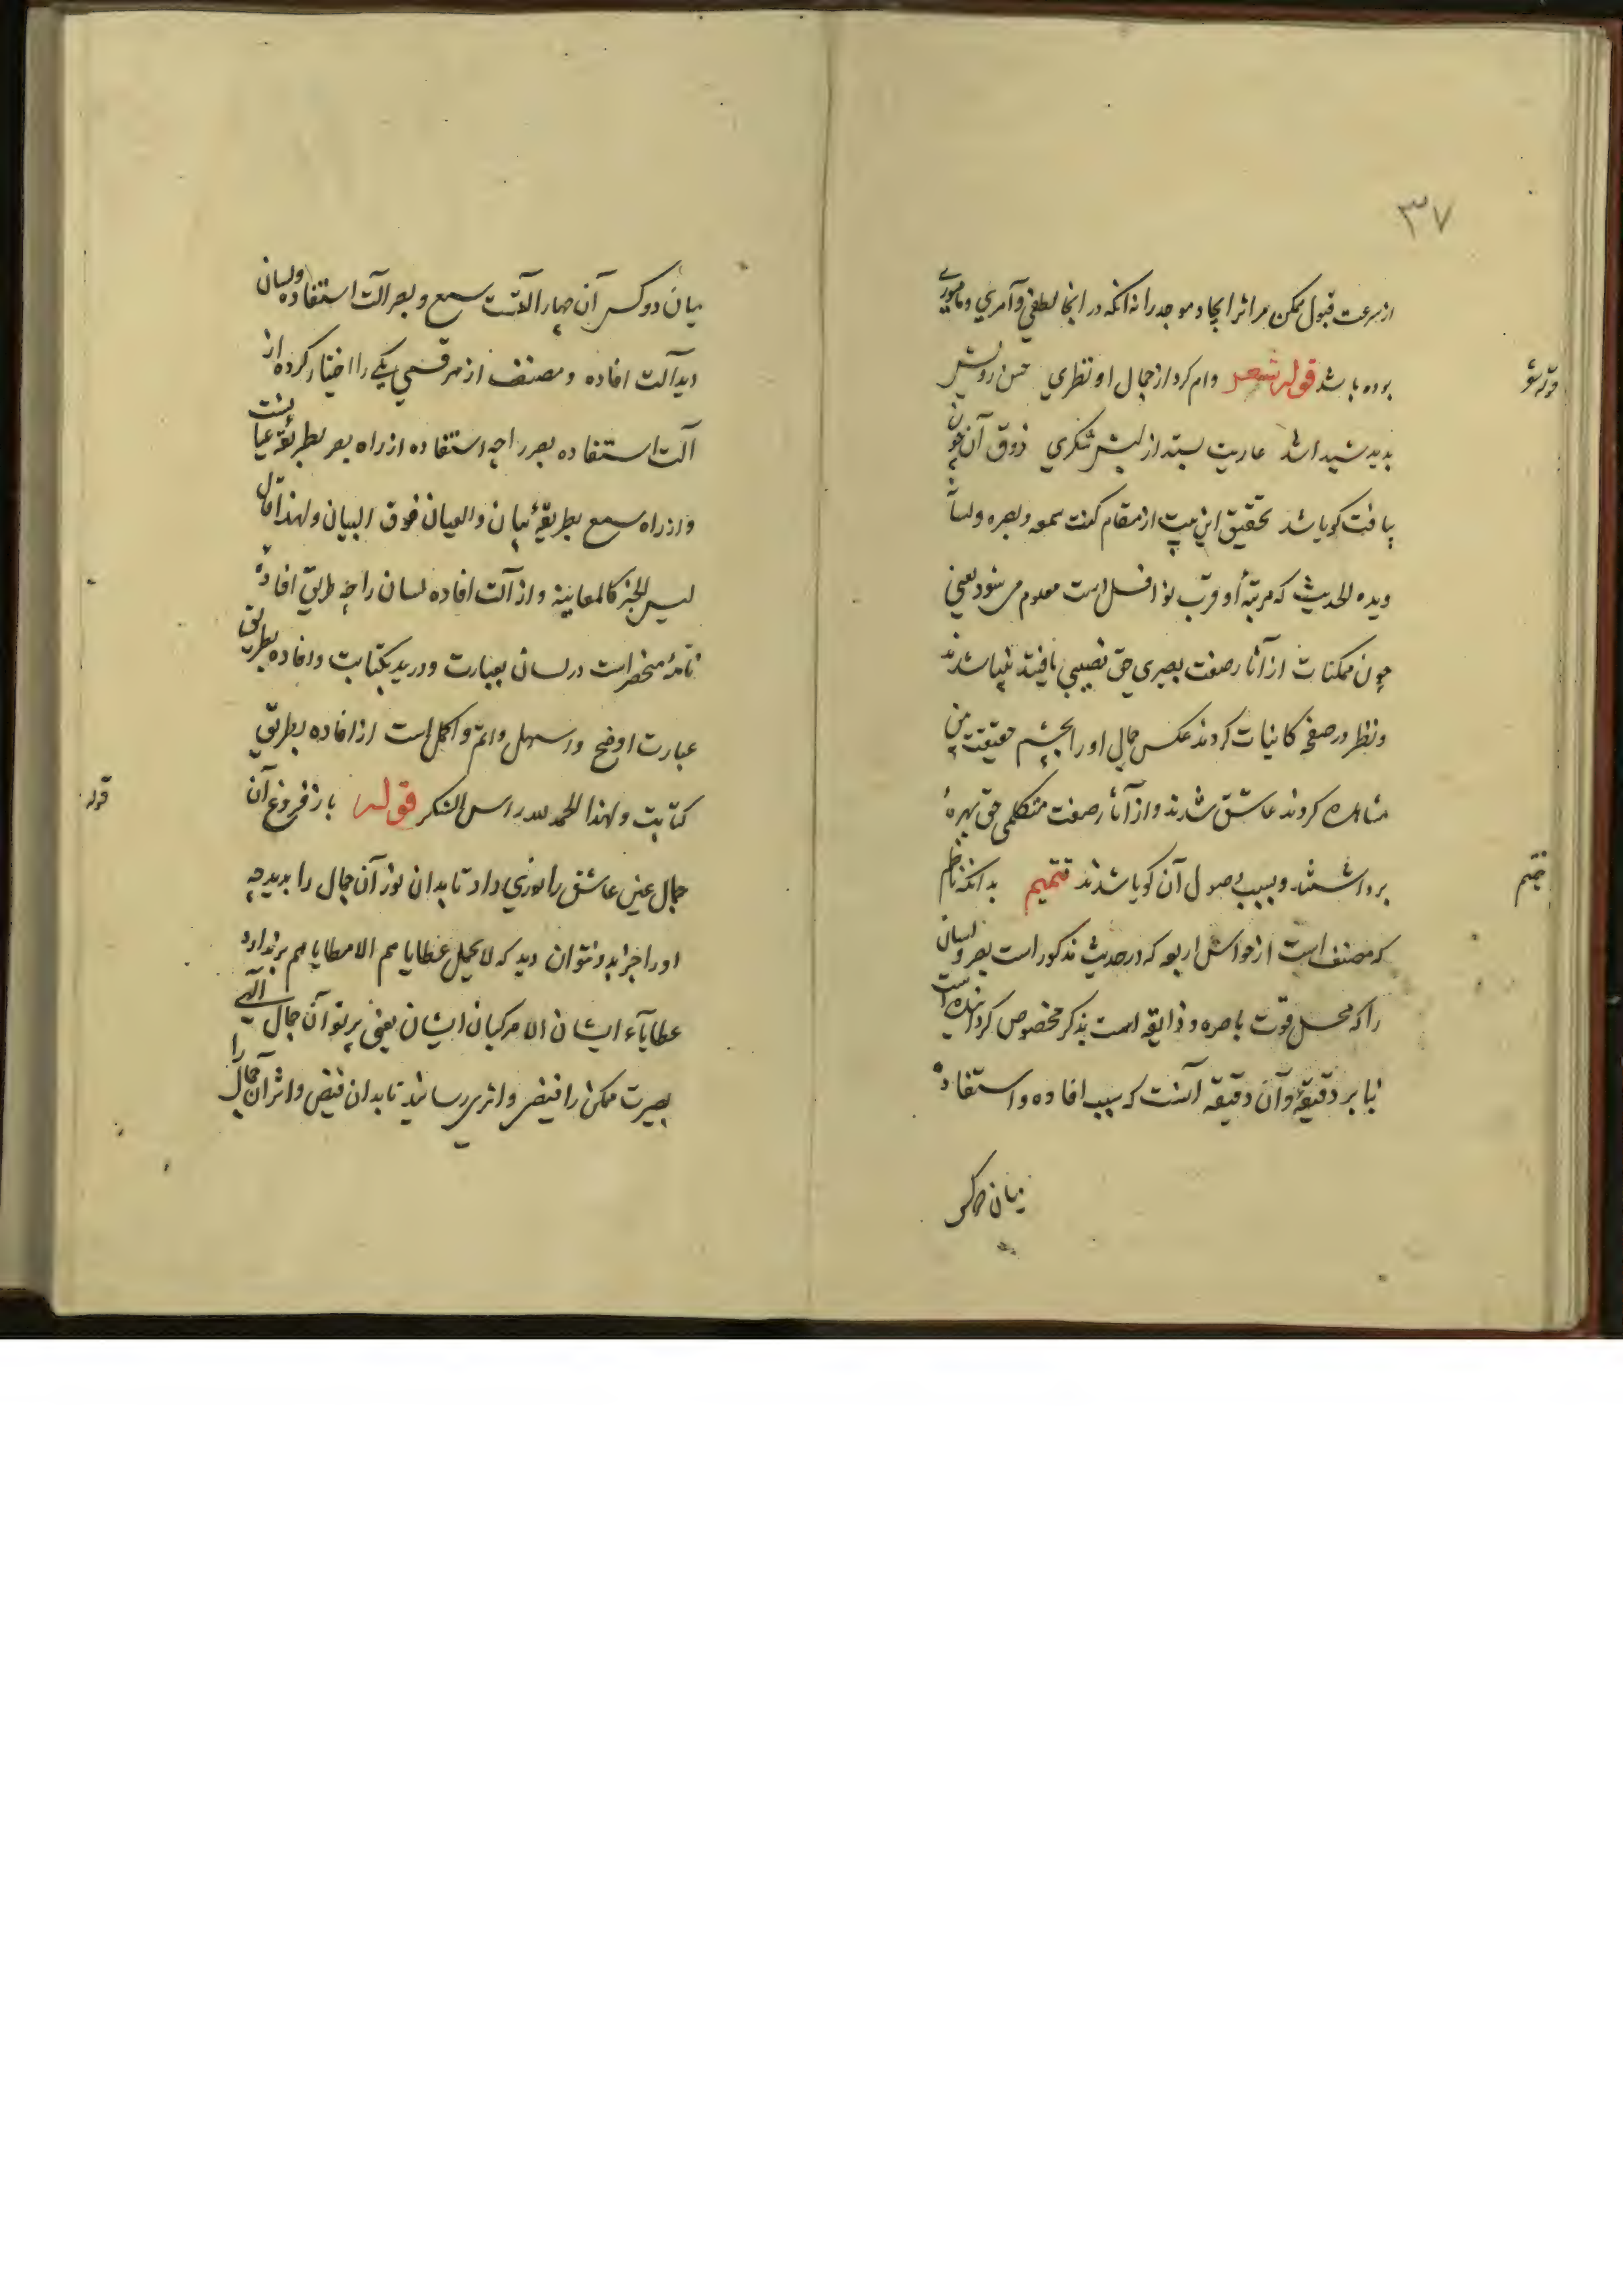 ۳۷
از سرعت قبول ممکن مر اثر ایجاد موجد را نه انکه در انجا لطفی و آمری و مامورے
بوده باشد قوله شعر وام کرد از جمال او نظری حسن رویش
قوله شعر
بدید شیدا شد عاریت بستد از لبش شکری ذوق آن چون
بیافت کویا شد تحقیق این بیت از مقام کنت سمعه و بصره و لسانه
ویده الحدیث که مرتبهٔ او قرب نوافل است معلوم می شود یعنی
چون ممکنات از آثار صفت بصیری حق نصیبی یافتند بینا شدند
و نظر در صفحه کاینات کردند عکس جمال او را بچشم حقیقت بین
مشاهده کردند عاشق شدند و از آثار صفت متکلمی حق بهرهٔ
برداشتند و بسبب حصول آن کویا شدند تتمیم بدانکه ناظم
تتمیم
که مصنف است از حواس اربعه که در حدیث مذکور است بصر و لسان
را که محل قوت باصره و ذایقه است بذکر مخصوص کردانیده است
بنا بر دقیقهٔ و آن دقیقه آنست که سبب افاده و استفاده
میان دو کس
میان دو کس آن چهار آلتست سمع و بصر آلت استفاده و لسان
و ید آلت افاده و مصنف از هر قسمی یکی را اختیار کرده از
آلت استفاده بصر را چه استفاده از راه بصر بطریقهٔ عیانست
و از راه سمع بطریقهٔ بیان و العیان فوق البیان و لهذا قال
لیس الخبر کالمعاینة و از آلت افاده لسان را چه طریق افادهٔ
تامه منحصر است در لسان بعبارت و در ید بکتابت و افاده بطریق
عبارت اوضح و اسهل و اتم و اکمل است از افاده بطریق
کتابت و لهذا الحمد لله راس الشکر قوله باز فروغ آن
قوله
جمال عین عاشق را نوری داد تا بدان نور آن جمال را بدید چه
او را جز بدو نتوان دید که لا یحمل عطایاهم الا مطایاهم برندارد
عطایاء ایشان الا مرکبان ایشان یعنی پرتو آن جمال الٓهی
بصیرت ممکن را فیض و اثری رسانید تا بدان فیض و اثر آن جمال را